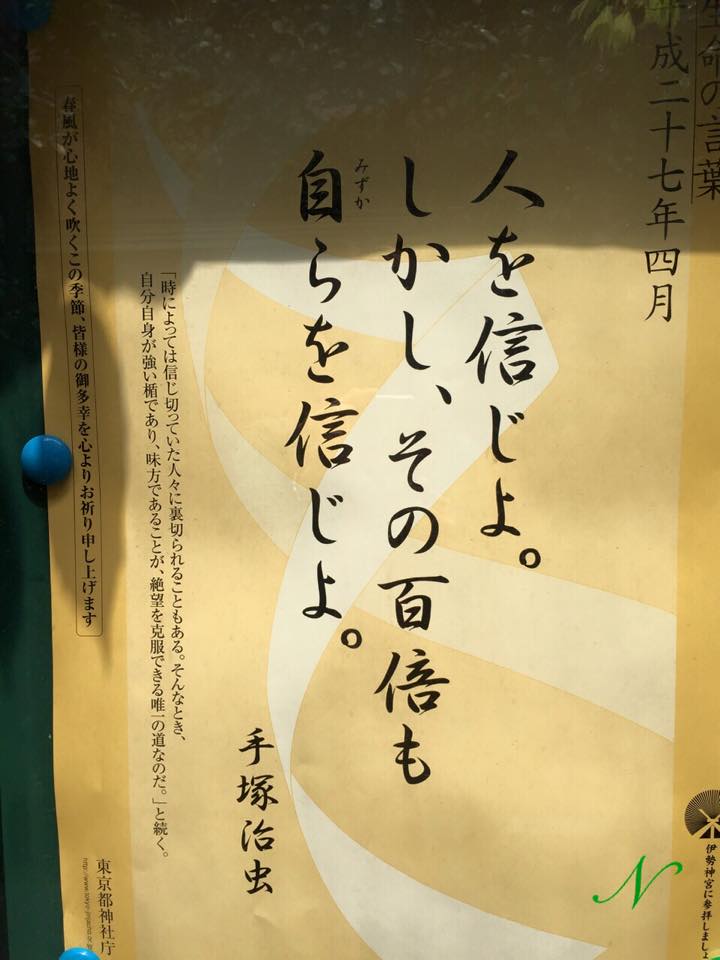 生命の言葉
平成二十七年四月
人を信じよ。
しかし、その百倍も
自らを信じよ。
みずか
手塚治虫
「時によっては信じ切っていた人々に裏切られることもある。そんなとき、
自分自身が強い楯であり、味方であることが、絶望を克服できる唯一の道なのだ。」と続く。
春風が心地よく吹くこの季節、皆様の御多幸を心よりお祈り申し上げます
東京都神社庁
伊勢神宮に参拝しましょ
N